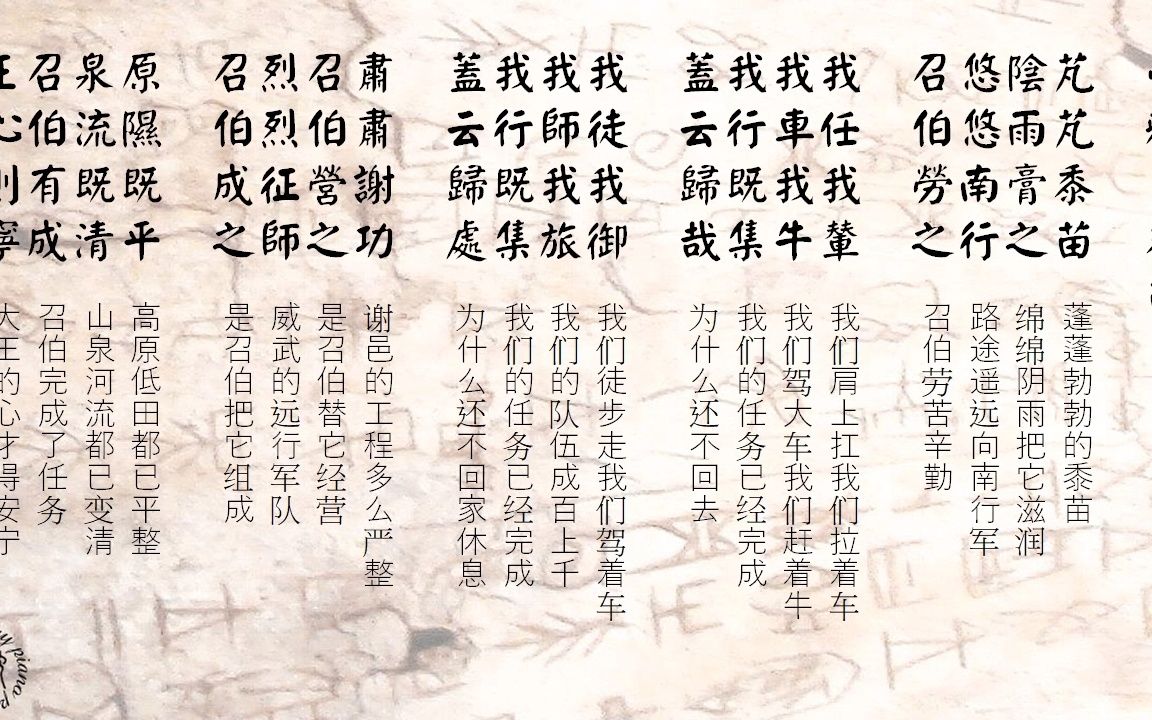 芃芃黍苗
陰雨膏之
悠悠南行
召伯勞之
蓬蓬勃勃的黍苗
绵绵阴雨把它滋润
路途遥远向南行军
召伯劳苦辛勤
我任我輦
我車我牛
我行既集
蓋云歸哉
我们肩上扛我们拉着车
我们驾大车我们赶着牛
我们的任务已经完成
为什么还不回去
我徒我御
我師我旅
我行既集
蓋云歸處
我们徒步走我们驾着车
我们的队伍成百上千
我们的任务已经完成
为什么还不回家休息
肅肅謝功
召伯營之
烈烈征師
召伯成之
谢邑的工程多么严整
是召伯替它经营
威武的远行军队
是召伯把它组成
原隰既平
泉流既清
召伯有成
王心則寧
高原低田都已平整
山泉河流都已变清
召伯完成了任务
大王的心才得安宁
piano